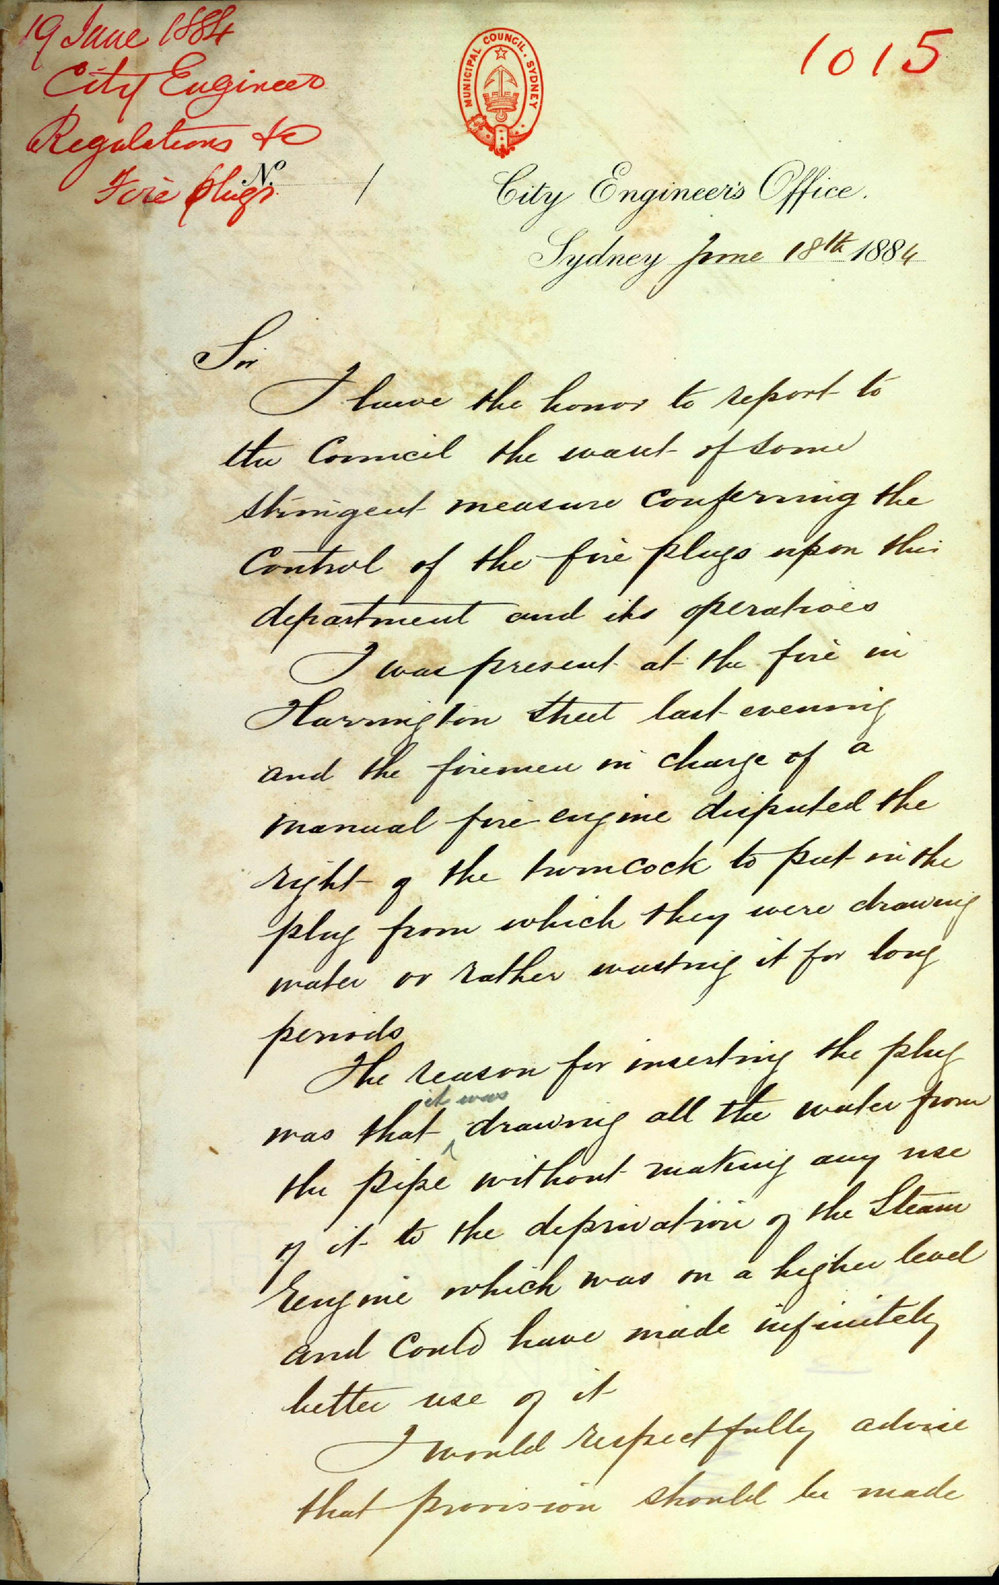 19 June 1884
City Engineer
Regulations &c
Fire plugs
1015
MUNICIPAL COUNCIL. SYDNEY
No. /
City Engineer's Office.
Sydney June 18th 1884
Sir
I have the honor to report to
the Council the want of some
stringent measure conferring the
Control of the fire plugs upon this
department and its operatives
I was present at the fire in
Harrington Street last evening
and the firemen in charge of a
manual fire engine disputed the
right of the turncock to put in the
plug from which they were drawing
water or rather wasting it for long
periods
The reason for inserting the plug
was that it was drawing all the water from
the pipe without making any use
of it to the deprivation of the Steam
Engine which was on a higher level
and could have made infinitely
better use of it
I would respectfully advise
that provision should be made